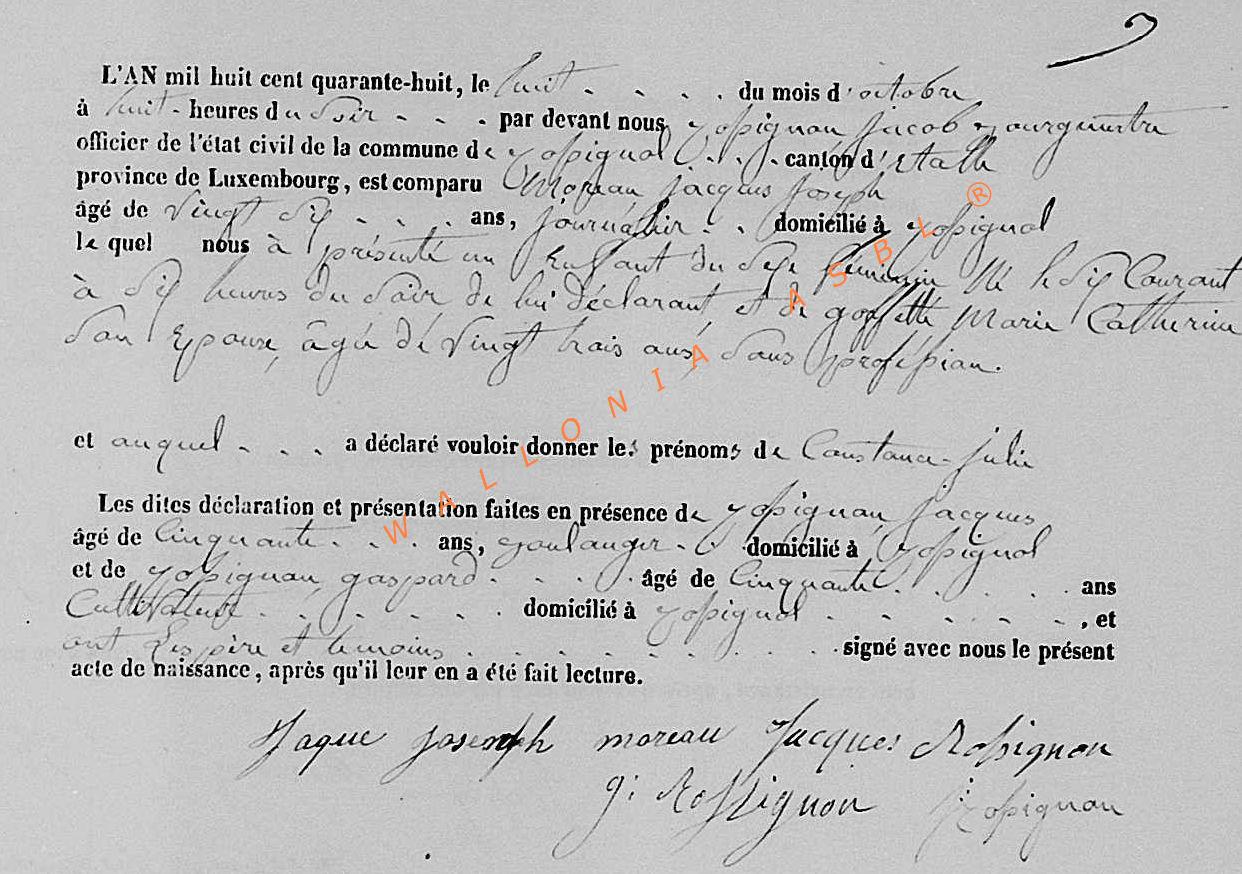 9
L'AN mil huit cent quarante-huit, le huit . . . . du mois d'octobre
à huit heures du Soir - - - par devant nous, Rossignon Jacob Bourgmestre
officier de l'état civil de la commune de Rossignol . . . canton d'Etalle
province de Luxembourg, est comparu Moreau Jacques Joseph
âgé de Vingt Six . . . . ans, journalier . . domicilié à Rossignol
lequel nous à présenté un Enfant du Sexe féminin Né le Six Courant
à Six heures du Soir de lui déclarant et de goffette Marie Catherine
Son Epouse, âgée de Vingt trois ans, Sans profession.
et auquel . . . a déclaré vouloir donner les prénoms de Constance julie
Les dites déclaration et présentation faites en présence de Rossignon Jacques
âgé de Cinquante . . . ans, Boulanger . . domicilié à Rossignol
et de Rossignon gaspard . . . . âgé de Cinquante . . . . . ans
Cultivateur . . . . . . domicilié à Rossignol . . . . . . , et
ont Les père et temoins . . . . . . . . . . signé avec nous le présent
acte de naissance, après qu'il leur en a été fait lecture.
Jaque joseph moreau Jacques Rossignon
g: Rossignon J: Rossignon
WALLONIA ASBL ®